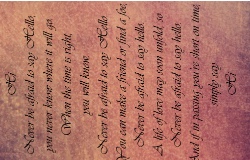 Hi
Never be afraid to say Hello,
you never know where it will go.
When the time is right,
you will know.
Never be afraid to say Hello.
You can make a friend or find a foe,
Never be afraid to say hello.
A life of love may soon unfold so
Never be afraid to say hello
And if in passing you is short on time,
simply say
Hi